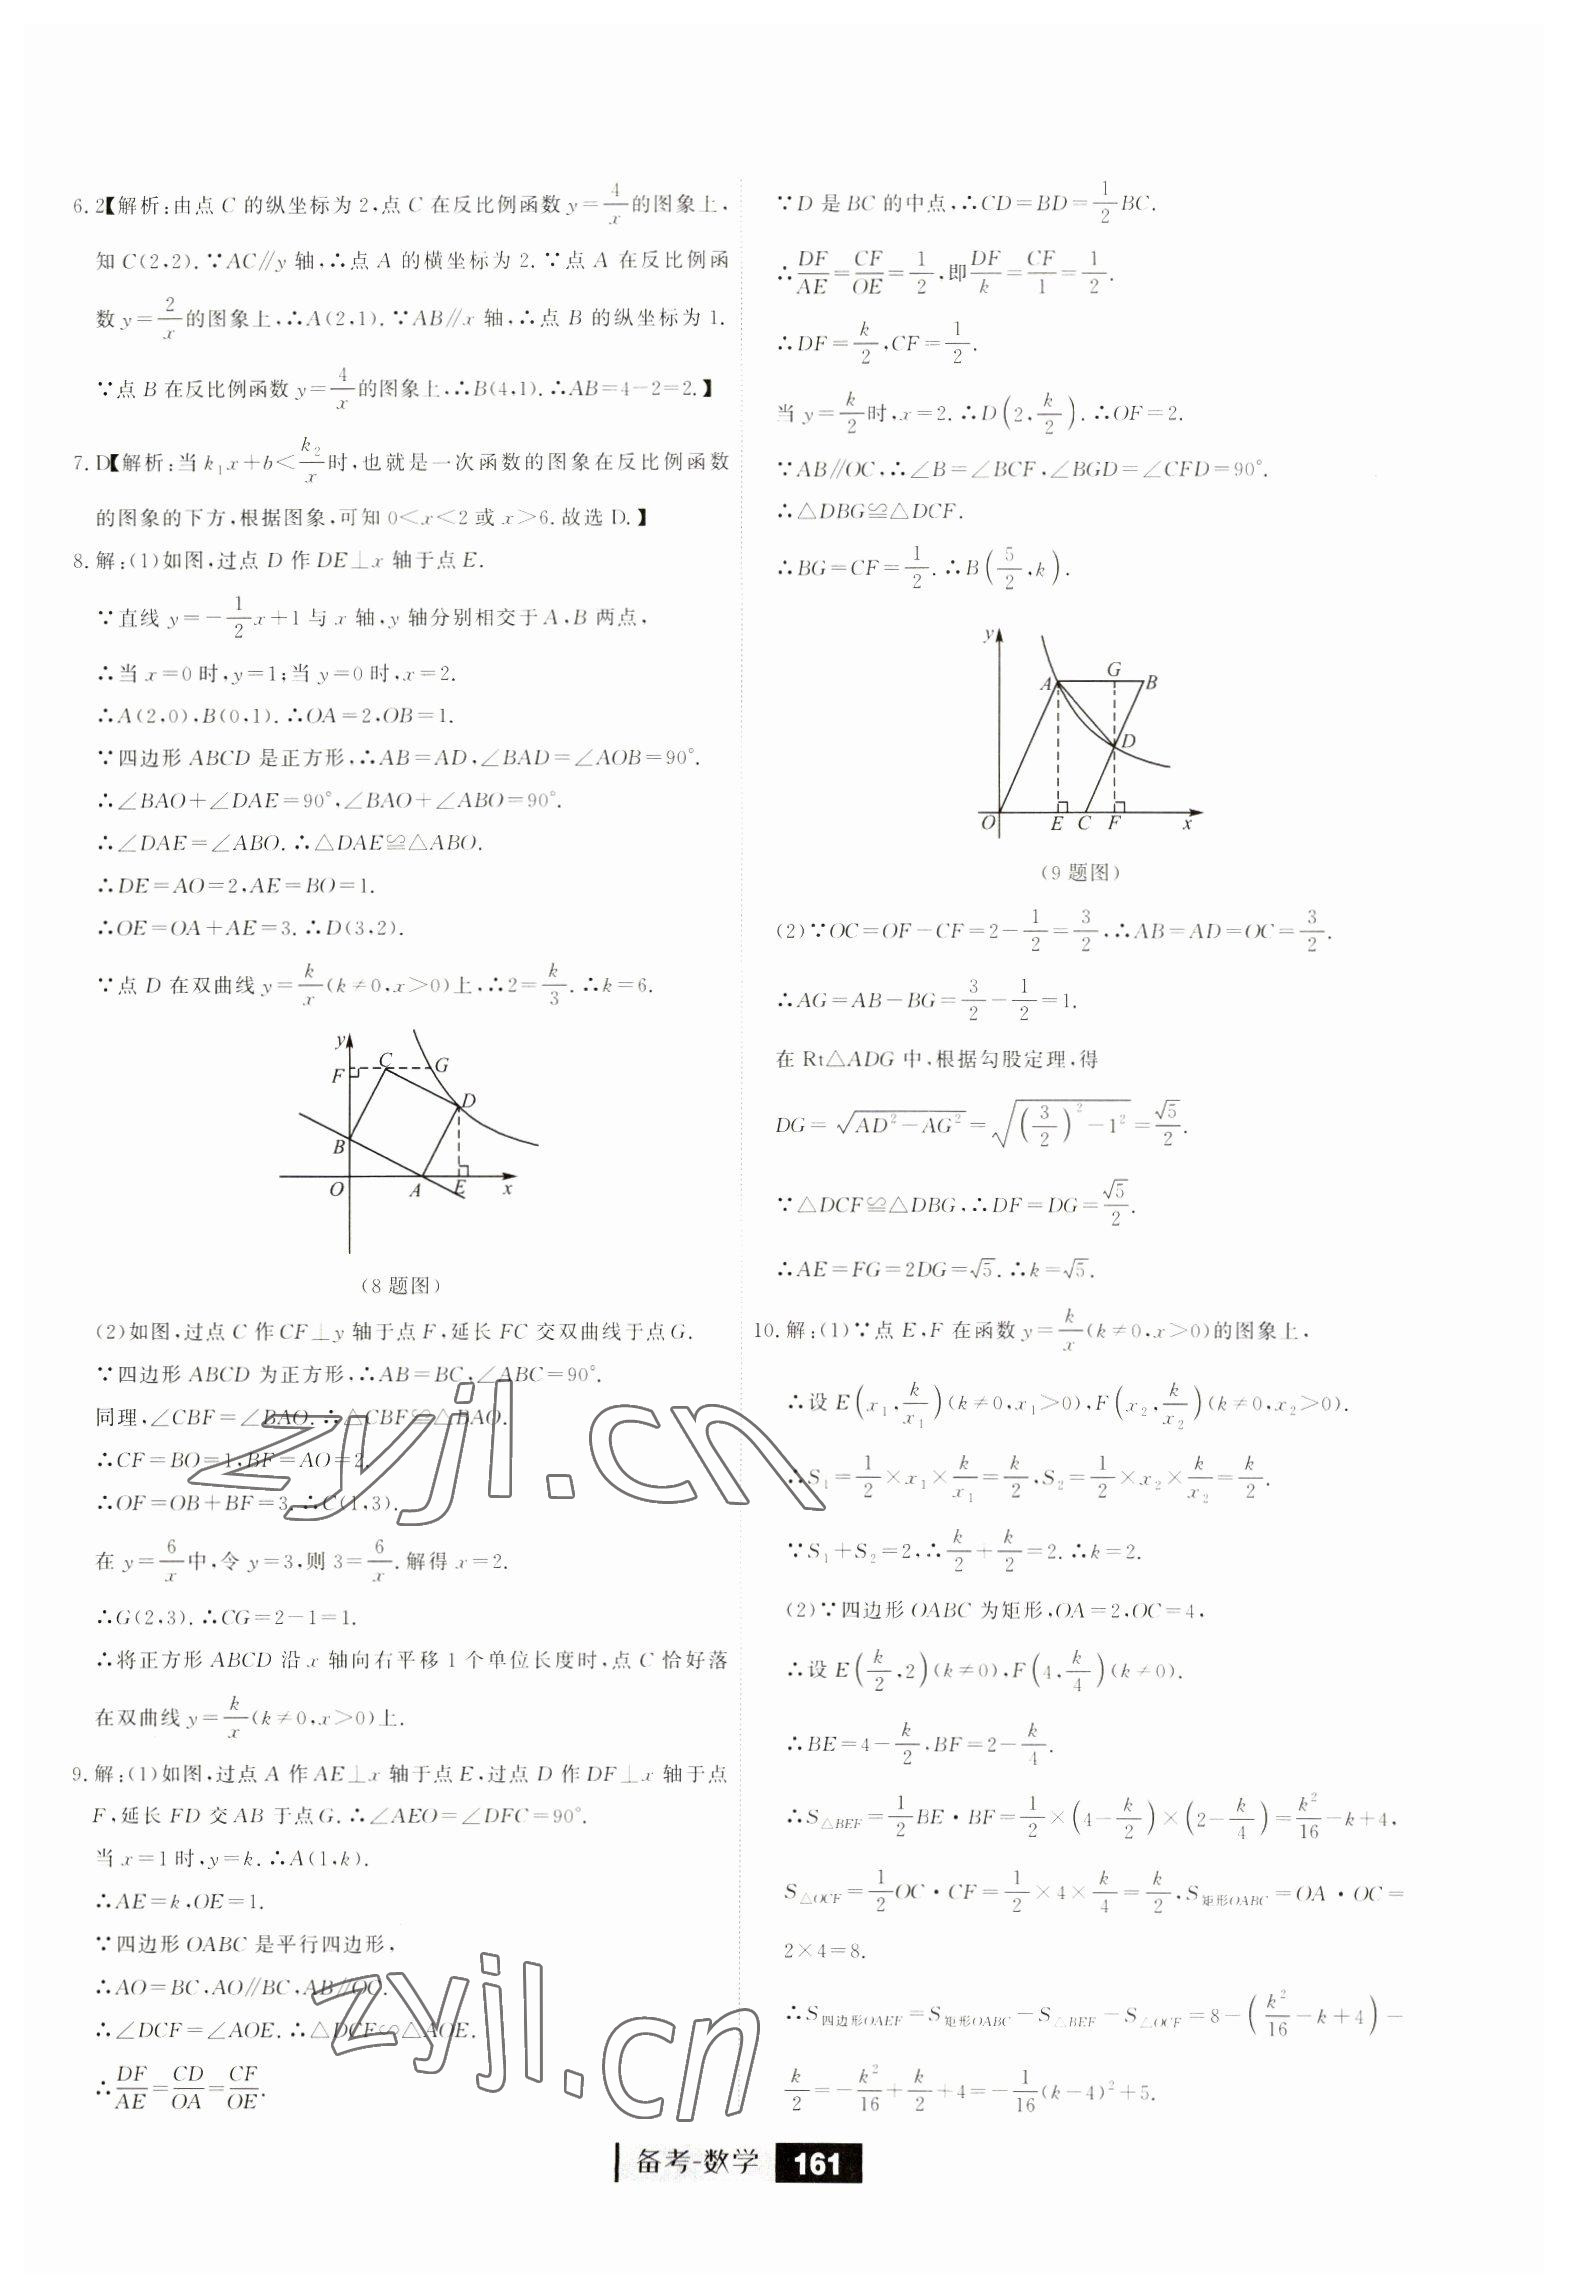 6. 2【解析:由点 C 的纵坐标为 2,点 C 在反比例函数 y=4/x 的图象上,
知 C(2,2). ∵AC∥y 轴,∴点 A 的横坐标为 2. ∵点 A 在反比例函
数 y=2/x 的图象上,∴A(2,1). ∵AB∥x 轴,∴点 B 的纵坐标为 1.
∵点 B 在反比例函数 y=4/x 的图象上,∴B(4,1). ∴AB=4-2=2.】
7. D【解析:当 k₁x+b<k₂/x 时,也就是一次函数的图象在反比例函数
的图象的下方,根据图象,可知 0<x<2 或 x>6. 故选 D.】
8. 解:(1)如图,过点 D 作 DE⊥x 轴于点 E.
∵直线 y=-1/2x+1 与 x 轴,y 轴分别相交于 A,B 两点,
∴当 x=0 时,y=1;当 y=0 时,x=2.
∴A(2,0),B(0,1). ∴OA=2,OB=1.
∵四边形 ABCD 是正方形,∴AB=AD,∠BAD=∠AOB=90°.
∴∠BAO+∠DAE=90°,∠BAO+∠ABO=90°.
∴∠DAE=∠ABO. ∴△DAE≌△ABO.
∴DE=AO=2,AE=BO=1.
∴OE=OA+AE=3. ∴D(3,2).
∵点 D 在双曲线 y=k/x(k≠0,x>0)上,∴2=k/3. ∴k=6.
y
F C G
D
B
O A E x
(8 题图)
(2)如图,过点 C 作 CF⊥y 轴于点 F,延长 FC 交双曲线于点 G.
∵四边形 ABCD 为正方形,∴AB=BC,∠ABC=90°.
同理,∠CBF=∠BAO. ∴△CBF≌△BAO.
∴CF=BO=1,BF=AO=2.
∴OF=OB+BF=3. ∴C(1,3).
在 y=6/x 中,令 y=3,则 3=6/x. 解得 x=2.
∴G(2,3). ∴CG=2-1=1.
∴将正方形 ABCD 沿 x 轴向右平移 1 个单位长度时,点 C 恰好落
在双曲线 y=k/x(k≠0,x>0)上.
9. 解:(1)如图,过点 A 作 AE⊥x 轴于点 E,过点 D 作 DF⊥x 轴于点
F,延长 FD 交 AB 于点 G. ∴∠AEO=∠DFC=90°.
当 x=1 时,y=k. ∴A(1,k).
∴AE=k,OE=1.
∵四边形 OABC 是平行四边形,
∴AO=BC,AO∥BC,AB∥OC.
∴∠DCF=∠AOE. ∴△DCF∽△AOE.
∴DF/AE=CD/OA=CF/OE.
∵D 是 BC 的中点,∴CD=BD=1/2BC.
∴DF/AE=CF/OE=1/2,即DF/k=CF/1=1/2.
∴DF=k/2,CF=1/2.
当 y=k/2时,x=2. ∴D(2,k/2). ∴OF=2.
∵AB∥OC,∴∠B=∠BCF,∠BGD=∠CFD=90°.
∴△DBG≌△DCF.
∴BG=CF=1/2. ∴B(5/2,k).
y
A G B
D
O E C F x
(9 题图)
(2)∵OC=OF-CF=2-1/2=3/2,∴AB=AD=OC=3/2.
∴AG=AB-BG=3/2-1/2=1.
在 Rt△ADG 中,根据勾股定理,得
DG=√(AD²-AG²)=√((3/2)²-1²)=√5/2.
∵△DCF≌△DBG,∴DF=DG=√5/2.
∴AE=FG=2DG=√5. ∴k=√5.
10. 解:(1)∵点 E,F 在函数 y=k/x(k≠0,x>0)的图象上,
∴设 E(x₁,k/x₁)(k≠0,x₁>0),F(x₂,k/x₂)(k≠0,x₂>0).
∴S₁=1/2×x₁×k/x₁=k/2,S₂=1/2×x₂×k/x₂=k/2.
∵S₁+S₂=2,∴k/2+k/2=2. ∴k=2.
(2)∵四边形 OABC 为矩形,OA=2,OC=4,
∴设 E(k/2,2)(k≠0),F(4,k/4)(k≠0).
∴BE=4-k/2,BF=2-k/4.
∴S△BEF=1/2BE·BF=1/2×(4-k/2)×(2-k/4)=k²/16-k+4,
S△OCF=1/2OC·CF=1/2×4×k/4=k/2,S矩形OABC=OA·OC=
2×4=8.
∴S四边形OAEF=S矩形OABC-S△BEF-S△OCF=8-(k²/16-k+4)-
k/2=-k²/16+k/2+4=-1/16(k-4)²+5.
zyjl.cn
zyjl.cn
备考-数学 161